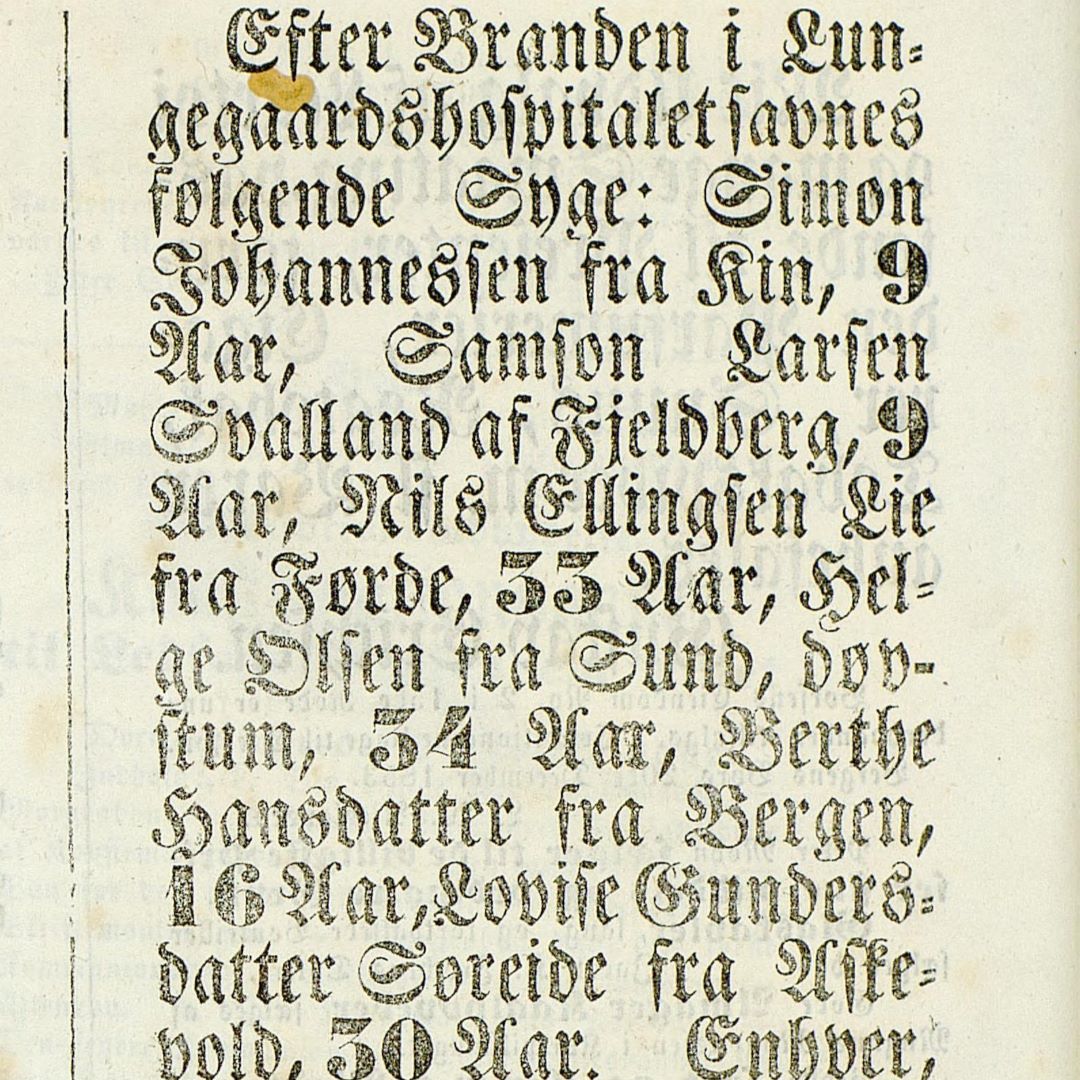 Efter Branden i Lun-
gegaardshospitalet savnes
følgende Syge: Simon
Johannessen fra Kin, 9
Aar, Samson Larsen
Svalland af Fjeldberg, 9
Aar, Nils Ellingsen Lie
fra Førde, 33 Aar, Hel-
ge Olsen fra Sund, døv-
stum, 34 Aar, Berthe
Hansdatter fra Bergen,
16 Aar, Lovise Gunders-
datter Søreide fra Aske-
vold, 30 Aar. Enhver,